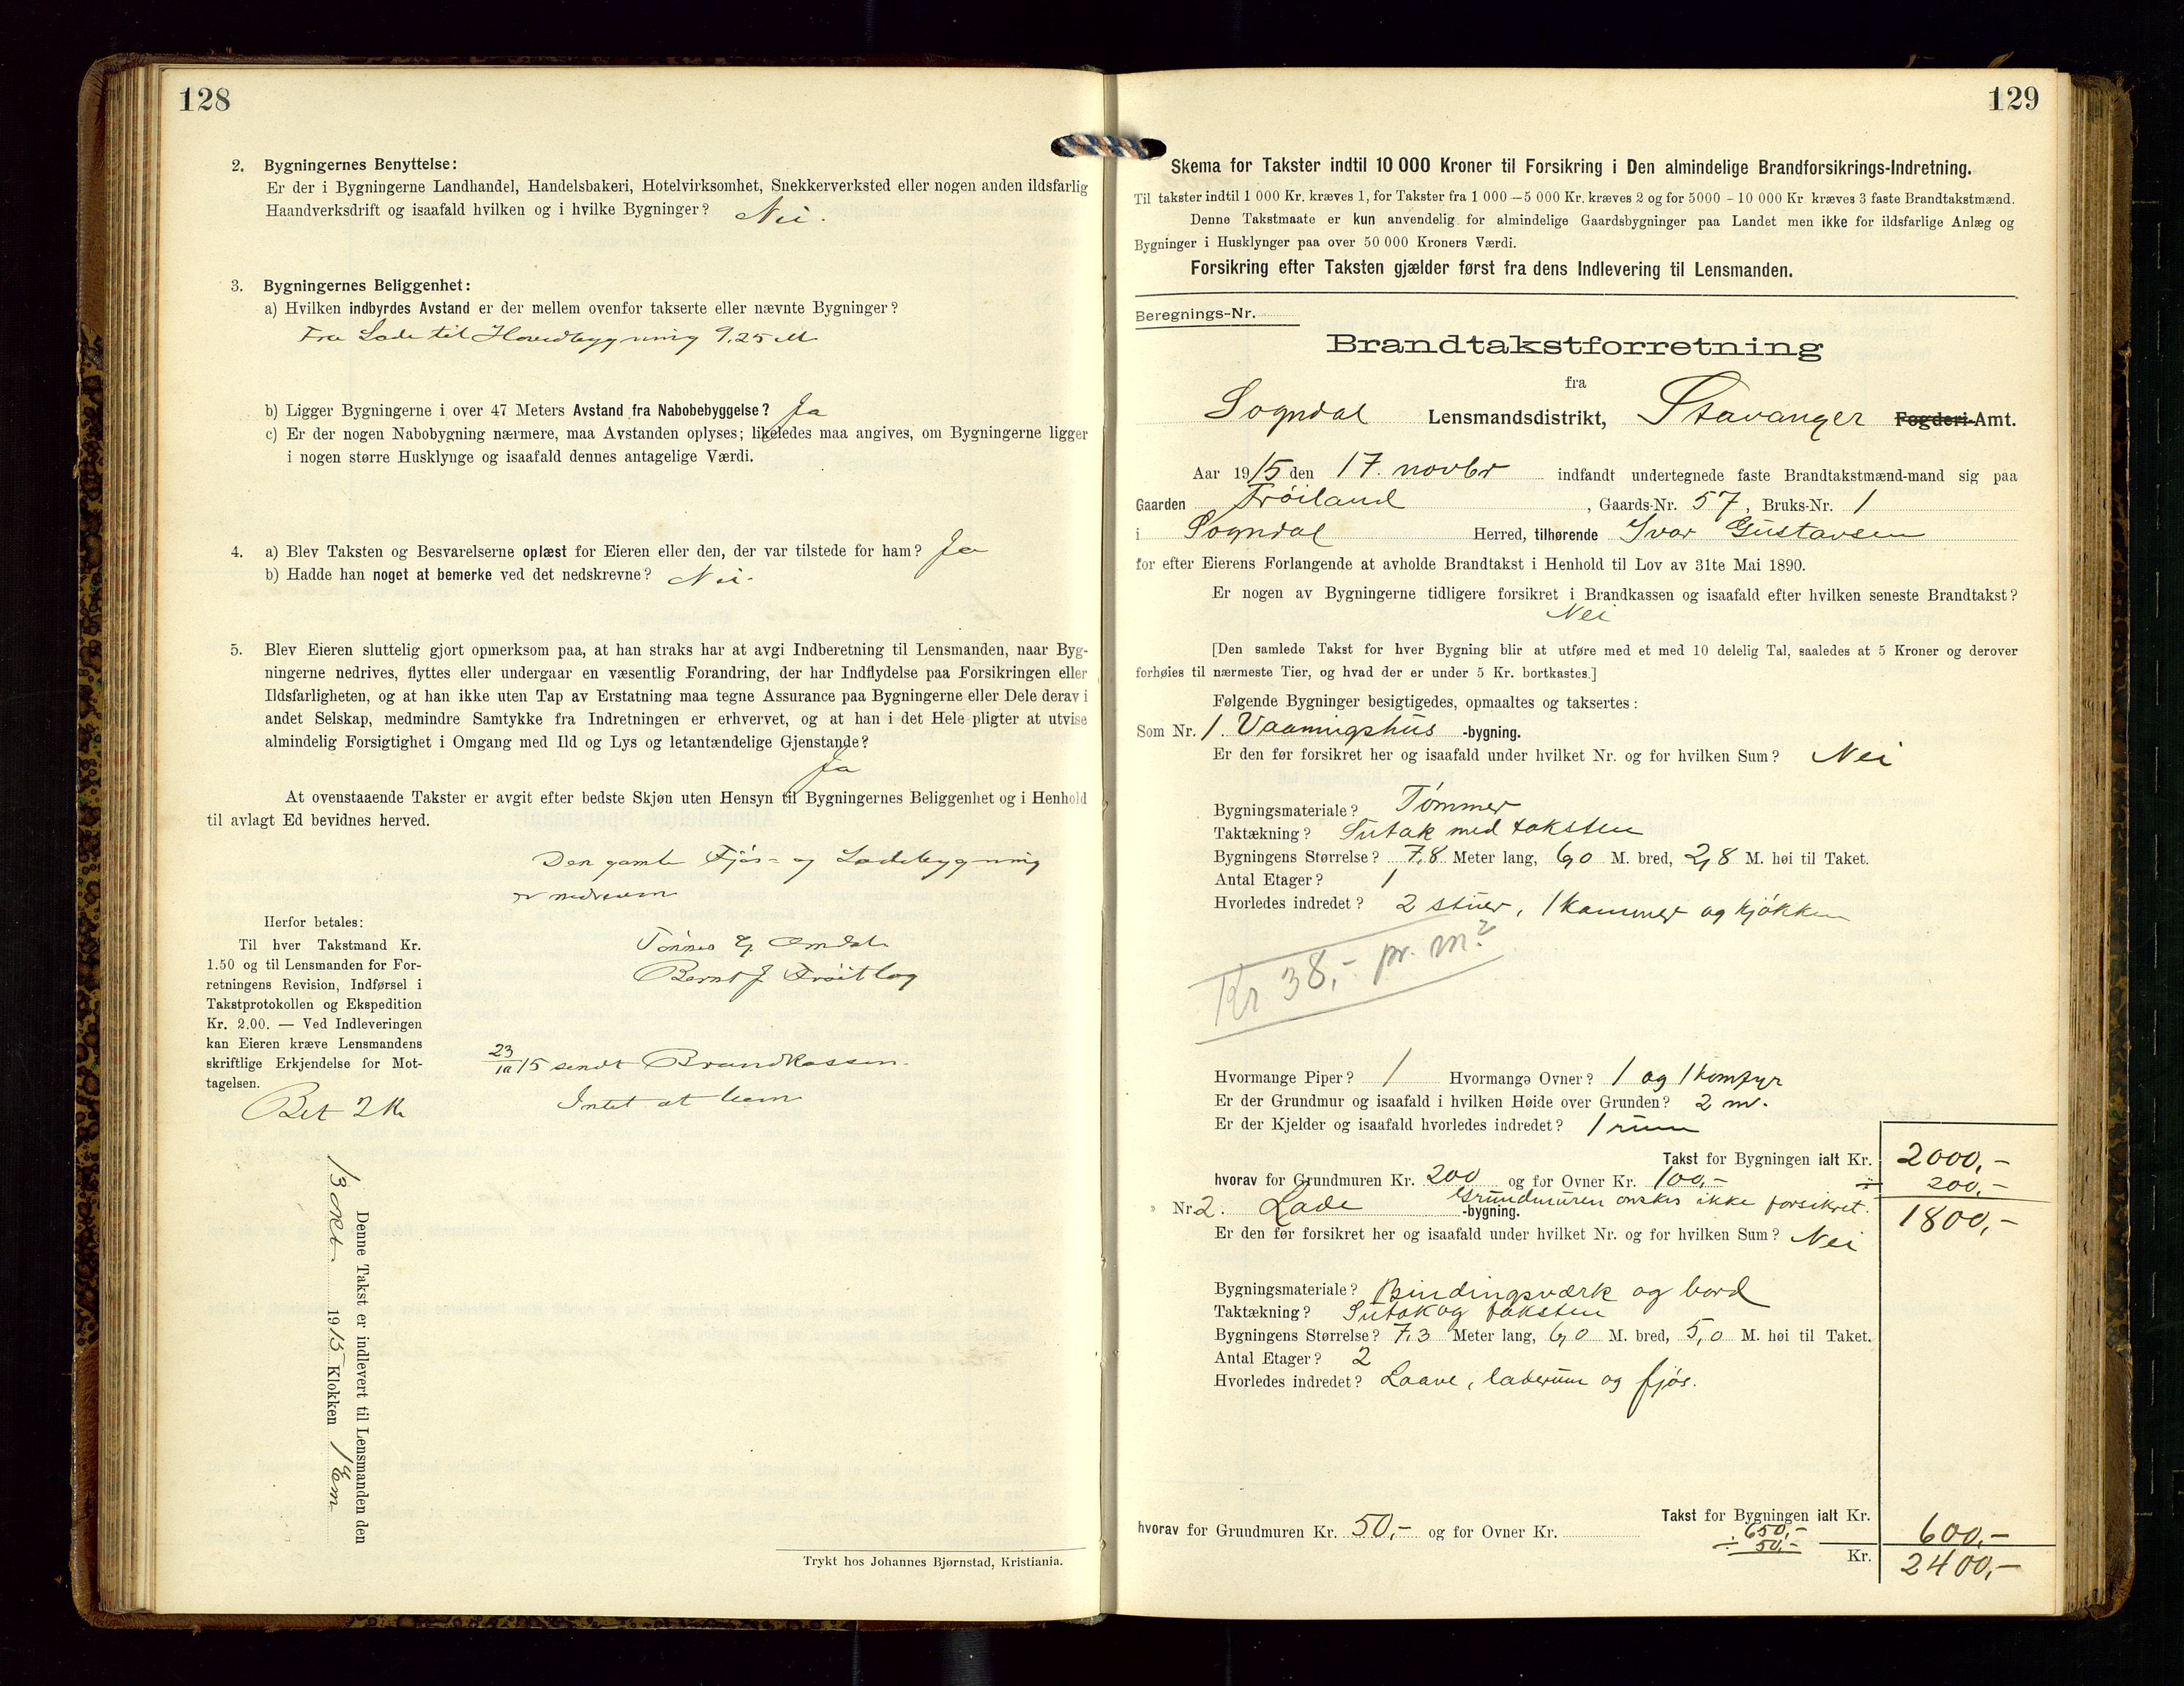 128
2. Bygningernes Benyttelse:
Er der i Bygningerne Landhandel, Handelsbakeri, Hotelvirksomhet, Snekkerverksted eller nogen anden ildsfarlig
Haandverksdrift og isaafald hvilken og i hvilke Bygninger? Nei.
3. Bygningernes Beliggenhet:
a) Hvilken indbyrdes Avstand er der mellem ovenfor takserte eller nævnte Bygninger?
Fra Lade til Hovedbygning 9,25 M
b) Ligger Bygningerne i over 47 Meters Avstand fra Nabobebyggelse? Ja
c) Er der nogen Nabobygning nærmere, maa Avstanden oplyses; likeledes maa angives, om Bygningerne ligger
i nogen større Husklynge og isaafald dennes antagelige Værdi.
4. a) Blev Taksten og Besvarelserne oplæst for Eieren eller den, der var tilstede for ham? Ja
b) Hadde han noget at bemerke ved det nedskrevne? Nei.
5. Blev Eieren sluttelig gjort opmerksom paa, at han straks har at avgi Indberetning til Lensmanden, naar Byg-
ningerne nedrives, flyttes eller undergaar en væsentlig Forandring, der har Indflydelse paa Forsikringen eller
Ildsfarligheten, og at han ikke uten Tap av Erstatning maa tegne Assurance paa Bygningerne eller Dele derav i
andet Selskap, medmindre Samtykke fra Indretningen er erhvervet, og at han i det Hele pligter at utvise
almindelig Forsigtighet i Omgang med Ild og Lys og letantændelige Gjenstande?
Ja
At ovenstaaende Takster er avgit efter bedste Skjøn uten Hensyn til Bygningernes Beliggenhet og i Henhold
til avlagt Ed bevidnes herved.
Den gamle Fjøs- og Ladebygning
er nedreven
Herfor betales:
Til hver Takstmand Kr.
1.50 og til Lensmanden for For-
retningens Revision, Indførsel i
Takstprotokollen og Ekspedition
Kr. 2.00. — Ved Indleveringen
kan Eieren kræve Lensmandens
skriftlige Erkjendelse for Mot-
tagelsen.
Bet 2 Kr
Tønnes Omdal
Bernt J
15 sendt Brandkassen.
Intet at bem
Denne Takst er indlevert til Lensmanden den
1915 Klokken 1 Em
Trykt hos Johannes Bjørnstad, Kristiania.
129
Skema for Takster indtil 10 000 Kroner til Forsikring i Den almindelige Brandforsikrings-Indretning.
Til takster indtil 1 000 Kr. kræves 1, for Takster fra 1 000 — 5 000 Kr. kræves 2 og for 5000 - 10 000 Kr kræves 3 faste Brandtakstmænd.
Denne Takstmaate er kun anvendelig for almindelige Gaardsbygninger paa Landet men ikke for ildsfarlige Anlæg og
Bygninger i Husklynger paa over 50 000 Kroners Værdi.
Forsikring efter Taksten gjælder først fra dens Indlevering til Lensmanden.
Beregnings-Nr.
Brandtakstforretning
fra
Sogndal Lensmandsdistrikt, Stavanger Fogderi-Amt.
Aar 1915 den 17. novbr indfandt undertegnede faste Brandtakstmænd-mand sig paa
Gaarden Frøiland, Gaards-Nr. 57, Bruks-Nr. 1
i Sogndal Herred, tilhørende Ivar Gustavsen
for efter Eierens Forlangende at avholde Brandtakst i Henhold til Lov av 31te Mai 1890.
Er nogen av Bygningerne tidligere forsikret i Brandkassen og isaafald efter hvilken seneste Brandtakst?
Nei
[Den samlede Takst for hver Bygning blir at utføre med et med 10 delelig Tal, saaledes at 5 Kroner og derover
forhøies til nærmeste Tier, og hvad der er under 5 Kr. bortkastes.]
Følgende Bygninger besigtigedes, opmaaltes og taksertes:
Som Nr. 1. Vaaningshus -bygning.
Er den før forsikret her og isaafald under hvilket Nr. og for hvilken Sum? Nei
Bygningsmateriale? Tømmer
Taktækning? Sutak med taksten
Bygningens Størrelse? 7,8 Meter lang, 6,0 M. bred, 2,8 M. høi til Taket.
Antal Etager? 1
Hvorledes indredet? 2 stuer, 1 kammer og kjøkken
Kr 38,- pr. m²
Hvormange Piper? 1 Hvormange Ovner? 1 og 1 komfyr
Er der Grundmur og isaafald i hvilken Høide over Grunden? 2 m.
Er der Kjelder og isaafald hvorledes indredet? 1 rum
Takst for Bygningen ialt Kr. 2000,-
hvorav for Grundmuren Kr. 200 og for Ovner Kr. 100,- ÷ 200,-
Grundmuren ønskes ikke forsikret.
1800,-
" Nr 2. Lade -bygning.
Er den før forsikret her og isaafald under hvilket Nr. og for hvilken Sum? Nei
Bygningsmateriale? Bindingsværk og bord
Taktækning? Sutak og taksten
Bygningens Størrelse? 7,3 Meter lang, 6,0 M. bred, 5,0 M. høi til Taket.
Antal Etager? 2
Hvorledes indredet? Laave, laderum og fjøs.
Takst for Bygningen ialt Kr.
hvorav for Grundmuren Kr. 50,- og for Ovner Kr. 650,- 600,-
÷ 50,- Kr. 2400,-